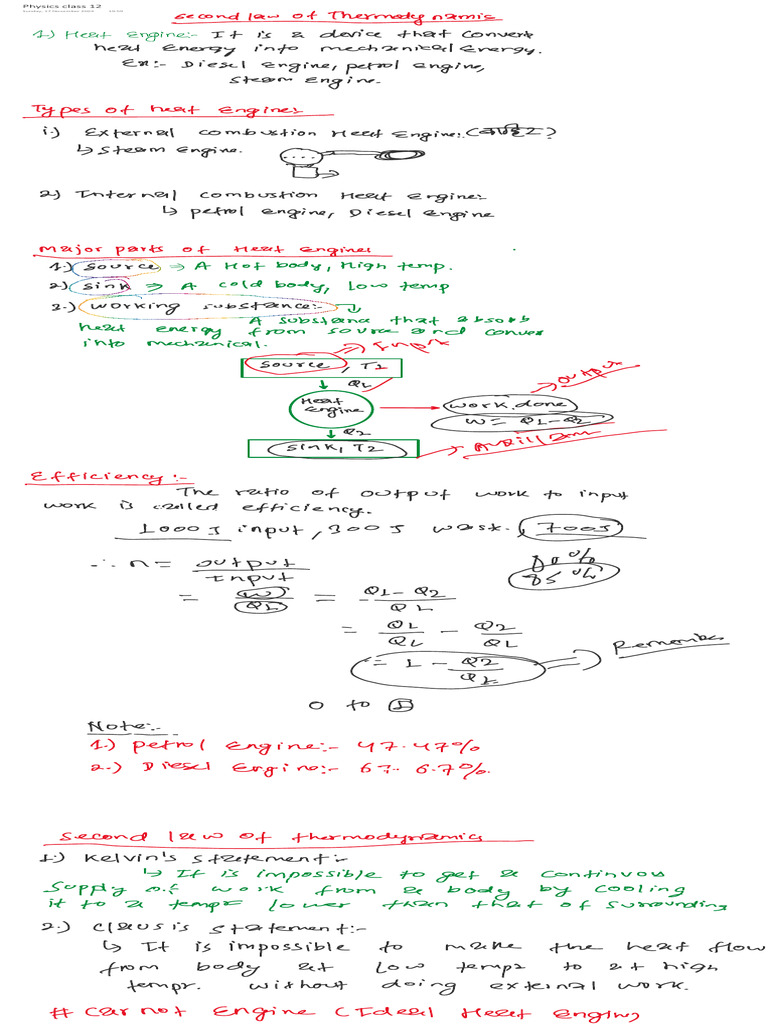 Physics class 12
Second law of Thermodynamic
1) Heat Engine:- It is a device that convert
heat Energy into mechanical Energy.
Ex:- Diesel Engine, petrol Engine,
Steam Engine.
Types of heat Engines
i.) External combustion Heat Engine:
↳ Steam Engine.
2) Internal combustion Heat Engine:-
↳ petrol engine, Diesel engine
Major parts of Heat Engines
1.) Source ⇒ A Hot body, High temp.
2) Sink ⇒ A cold body, Low temp
2.) Working substance:-
A substance that absorb
heat energy from source and conver
into mechanical.
Source, T1 ⇒ Input
Q1
Heat Engine
work done → output
W = Q1 - Q2
Q2
Sink, T2
Efficiency:-
The ratio of output work to input
work is called efficiency.
1000J input, 300J wask, 700J
∴ n = output / Input
= W / Q1 = Q1 - Q2 / Q1
= Q1 / Q1 - Q2 / Q1
= 1 - Q2 / Q1 ⇒ Remember
85%
0 to 1
Note:-
1.) Petrol Engine:- 47.47%
2.) Diesel Engine:- 67. 6.7%.
Second law of thermodynamics
1.) Kelvin's Statement:-
↳ It is impossible to get a continuous
supply of work from a body by cooling
it to a tempr lower than that of surrounding
2.) Clausis Statement:-
↳ It is impossible to make the heat flow
from body at low tempr to at high
tempr. without doing external work.
# Carnot Engine (Ideal Heat Engin)